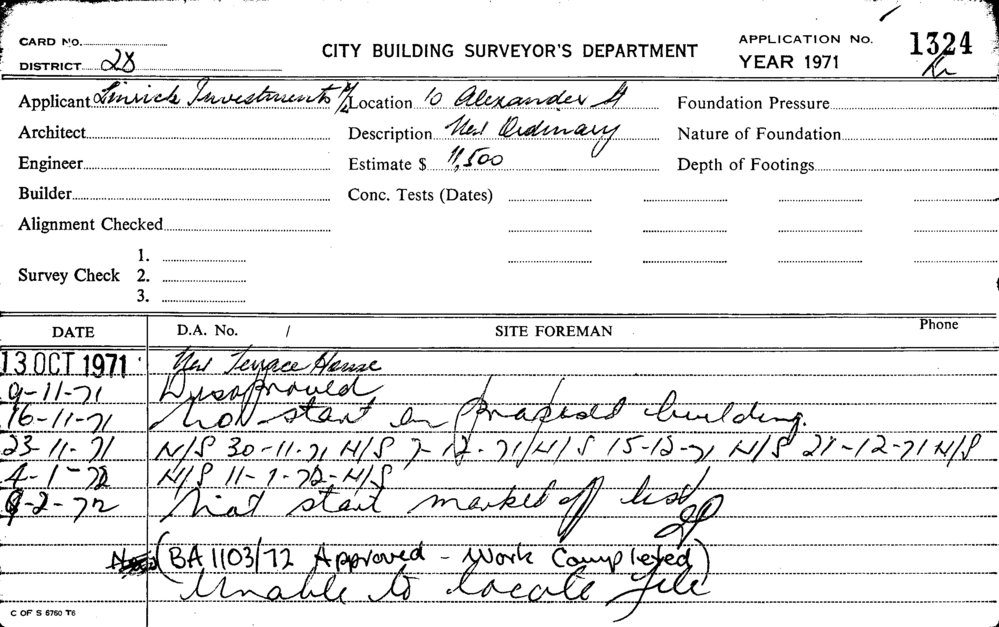 CARD No.
DISTRICT 28
CITY BUILDING SURVEYOR'S DEPARTMENT
APPLICATION No. 1324
YEAR 1971
Applicant Investments P/L
Location 10 Alexander St
Foundation Pressure
Architect
Description New Ordinary
Nature of Foundation
Engineer
Estimate $ 11,500
Depth of Footings
Builder
Conc. Tests (Dates)
Alignment Checked
Survey Check
1.
2.
3.
DATE D.A. No. / SITE FOREMAN Phone
13 OCT 1971 New Terrace House
9-11-71 Disapproved
16-11-71 Not start on proposed building.
23-11-71 N/S 30-11-71 N/S 7-12-71 N/S 15-12-71 N/S 21-12-71 N/S
4-1-72 N/S 11-1-72 - N/S
9-2-72 Not start marked off list
(BA 1103/72 Approved - Work Completed)
Unable to locate file
C OF S 6760 T6